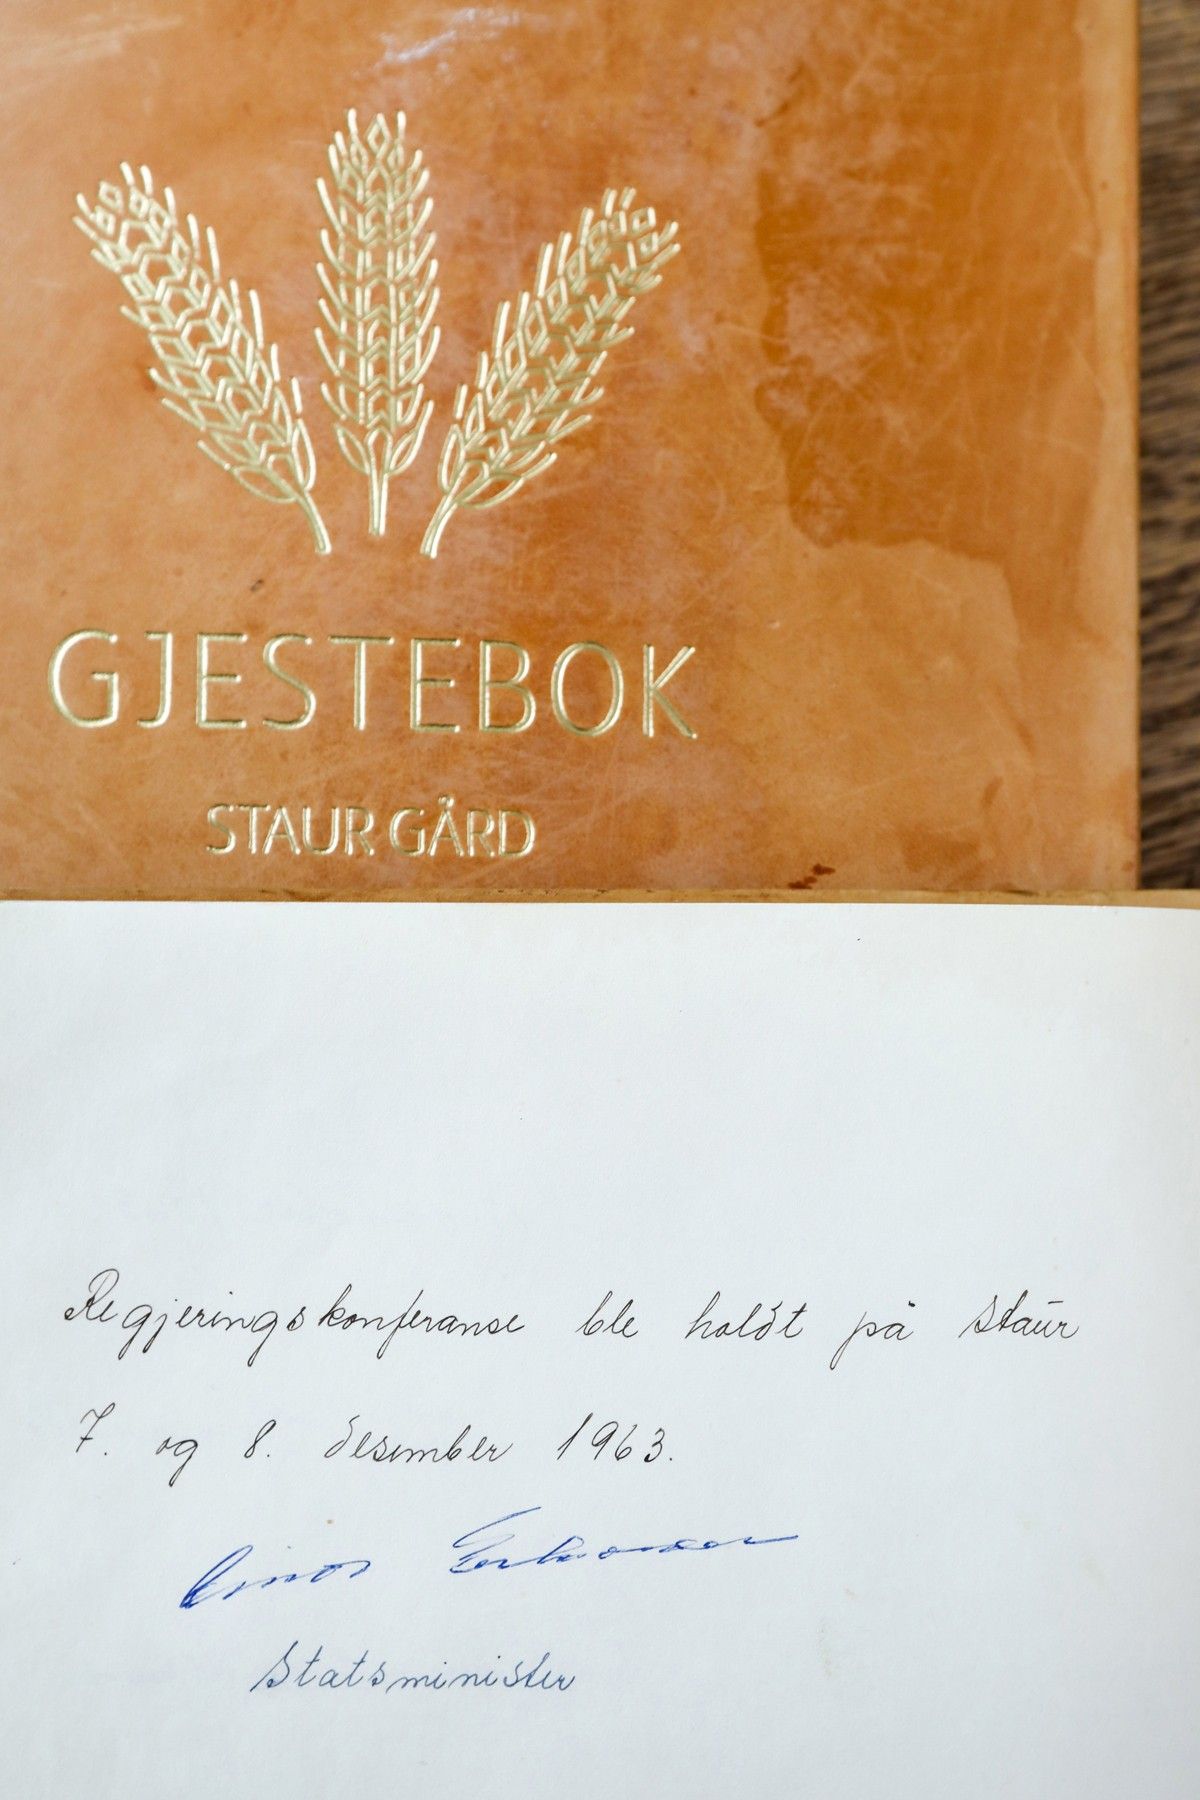 GJESTEBOK
STAUR GÅRD
Regjeringskonferanse ble holdt på Staur
7. og 8. desember 1963.
Einar Gerhardsen
Statsminister